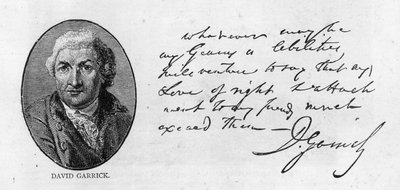 whatever may be
my Genius or abilities,
will venture to say that my
Love of right & attach
ment to my friends much
exceed them —
D. Garrick
DAVID GARRICK.